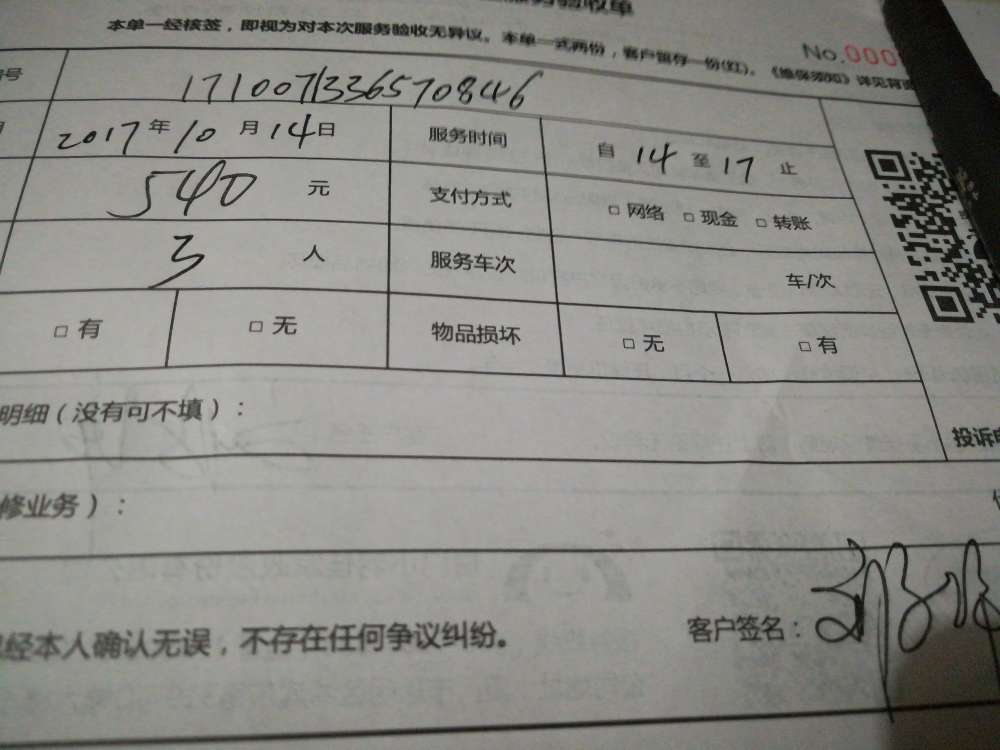 服务验收单
本单一经核签，即视为对本次服务验收无异议。本单一式两份，客户留存一份(红)。《维保须知》详见背面
No.000
号 171007133657084​6
2017年10月14日 服务时间 自 14 至 17 止
540 元 支付方式 □ 网络 □ 现金 □ 转账
3 人 服务车次 车/次
□ 有 □ 无 物品损坏 □ 无 □ 有
明细（没有可不填）：
投诉
修业务）：
经本人确认无误，不存在任何争议纠纷。 客户签名：